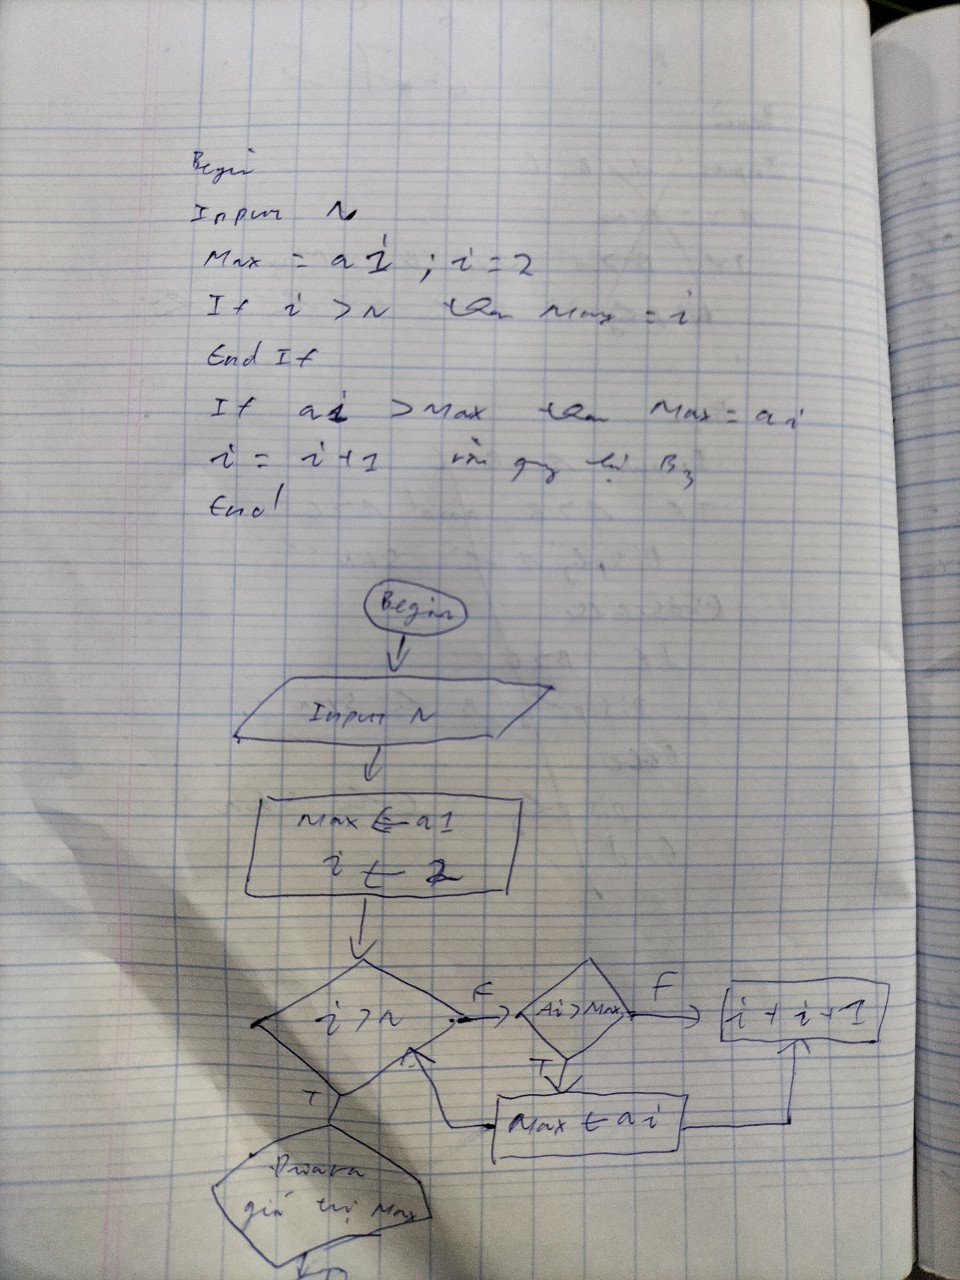 Begin
Input N
Max = a1 ; i = 2
If i > N then Max = i
End If
If ai > Max then Max = ai
i = i+1 rồi quay lại B3
End
Begin
Input N
Max ← a1
i ← 2
i > N
F
Ai > Max
F
i ← i+1
T
T
Max ← ai
Đưa ra
giá trị Max